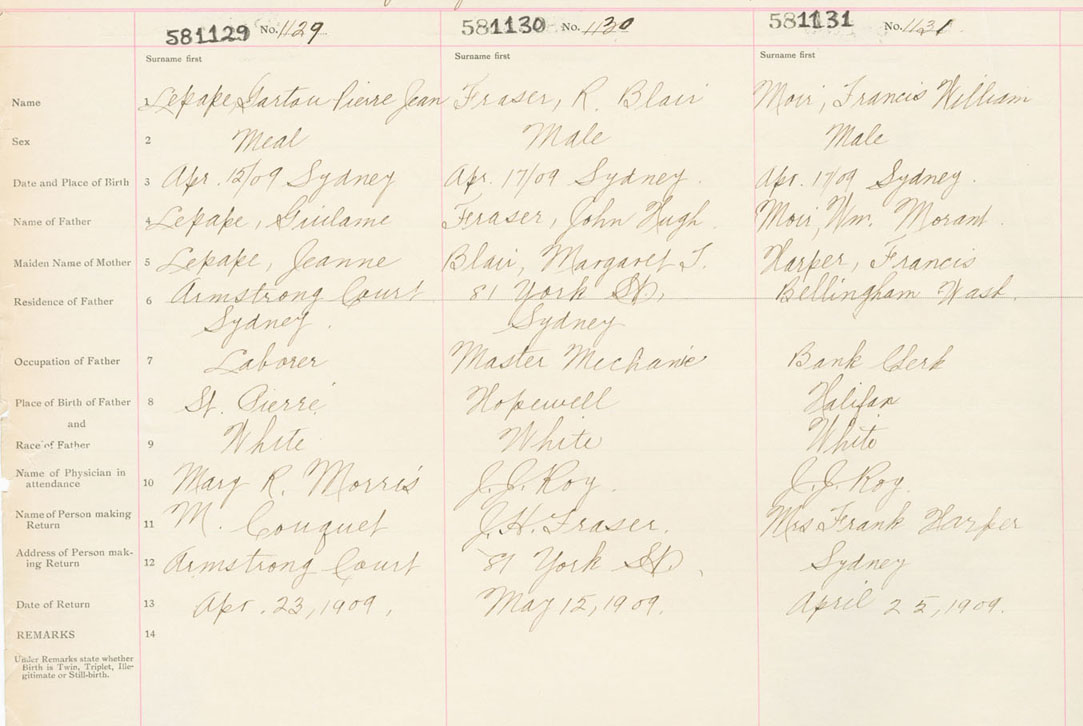 581129 No. 1129 581130 No. 1130 581131 No. 1131
Surname first Surname first Surname first
Name 1 Lepape, Gartau Pierre Jean Fraser, R. Blair Moir, Francis William
Sex 2 Meal Male Male
Date and Place of Birth 3 Apr. 12/09 Sydney Apr. 17/09 Sydney. Apr. 17/09 Sydney.
Name of Father 4 Lepape, Guilame Fraser, John Hugh. Moir, Wm. Morant.
Maiden Name of Mother 5 Lepape, Jeanne Blair, Margaret J. Harper, Francis
Residence of Father 6 Armstrong Court 81 York St, Bellingham Wash.
Sydney. Sydney
Occupation of Father 7 Laborer Master Mechanic Bank Clerk
Place of Birth of Father 8 St. Pierre Hopewell Halifax
and
Race of Father 9 White White White
Name of Physician in
attendance 10 Mary R. Morris J. J. Roy. J. J. Roy.
Name of Person making
Return 11 M. Couquet J. H. Fraser. Mrs Frank Harper
Address of Person mak-
ing Return 12 Armstrong Court 81 York St, Sydney
Date of Return 13 Apr. 23, 1909, May 15, 1909. April 25, 1909.
REMARKS 14
Under Remarks state whether
Birth is Twin, Triplet, Ille-
gitimate or Still-birth.